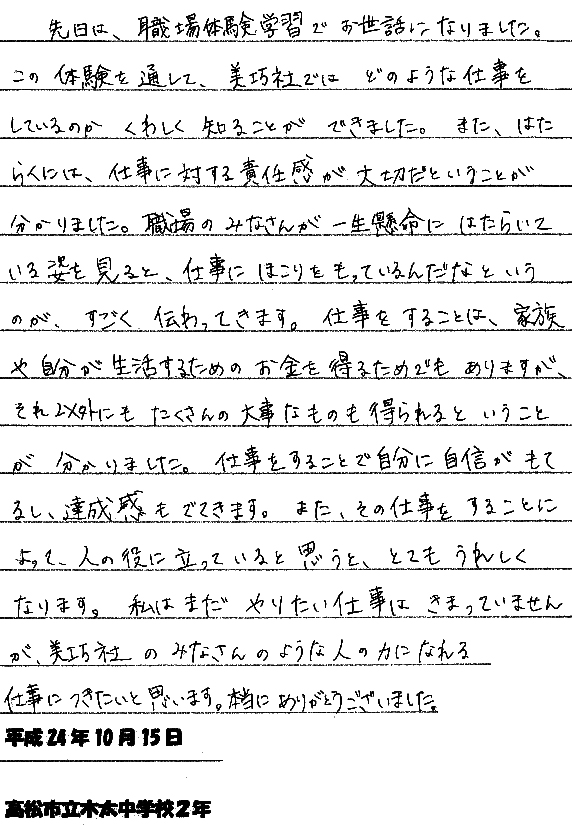 先日は、職場体験学習でお世話になりました。
この体験を通して、美巧社ではどのような仕事を
しているのかくわしく知ることができました。また、はた
らくには、仕事に対する責任感が大切だということが
分かりました。職場のみなさんが一生懸命にはたらいて
いる姿を見ると、仕事にほこりをもっているんだなという
のが、すごく伝わってきます。仕事をすることは、家族
や自分が生活するためのお金を得るためでもありますが、
それ以外にもたくさんの大事なものも得られるということ
が分かりました。仕事をすることで自分に自信がもて
るし、達成感もでてきます。また、その仕事をすることに
よって、人の役に立っていると思うと、とてもうれしく
なります。私はまだやりたい仕事はきまっていません
が、美巧社のみなさんのような人の力になれる
仕事につきたいと思います。本当にありがとうございました。
平成24年10月15日
高松市立木太中学校2年